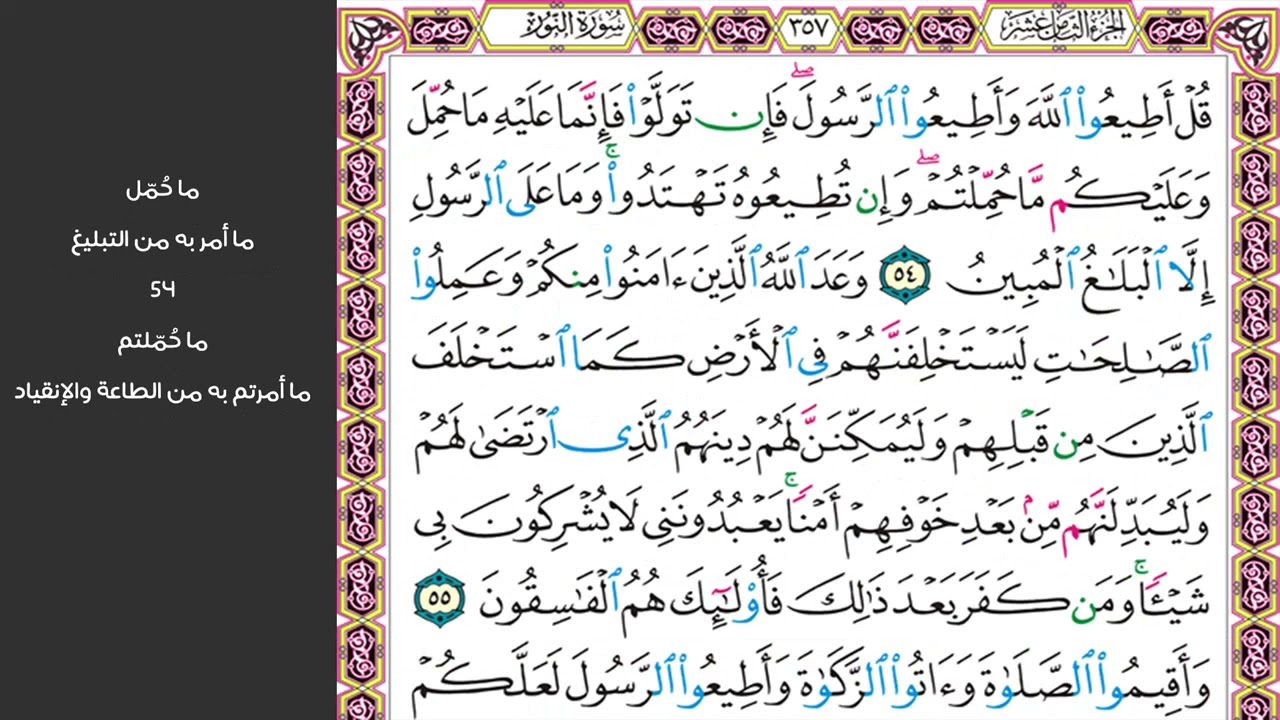 الجزء الثامن عشر
٣٥٧
سورة النور
قُلْ أَطِيعُوا۟ ٱللَّهَ وَأَطِيعُوا۟ ٱلرَّسُولَ ۖ فَإِن تَوَلَّوْا۟ فَإِنَّمَا عَلَيْهِ مَا حُمِّلَ
وَعَلَيْكُم مَّا حُمِّلْتُمْ ۖ وَإِن تُطِيعُوهُ تَهْتَدُوا۟ ۚ وَمَا عَلَى ٱلرَّسُولِ
إِلَّا ٱلْبَلَـٰغُ ٱلْمُبِينُ ٥٤ وَعَدَ ٱللَّهُ ٱلَّذِينَ ءَامَنُوا۟ مِنكُمْ وَعَمِلُوا۟
ٱلصَّـٰلِحَـٰتِ لَيَسْتَخْلِفَنَّهُمْ فِى ٱلْأَرْضِ كَمَا ٱسْتَخْلَفَ
ٱلَّذِينَ مِن قَبْلِهِمْ وَلَيُمَكِّنَنَّ لَهُمْ دِينَهُمُ ٱلَّذِى ٱرْتَضَىٰ لَهُمْ
وَلَيُبَدِّلَنَّهُم مِّنۢ بَعْدِ خَوْفِهِمْ أَمْنًا ۚ يَعْبُدُونَنِى لَا يُشْرِكُونَ بِى
شَيْـًٔا ۚ وَمَن كَفَرَ بَعْدَ ذَٰلِكَ فَأُو۟لَـٰٓئِكَ هُمُ ٱلْفَـٰسِقُونَ ٥٥
وَأَقِيمُوا۟ ٱلصَّلَوٰةَ وَءَاتُوا۟ ٱلزَّكَوٰةَ وَأَطِيعُوا۟ ٱلرَّسُولَ لَعَلَّكُمْ
ما حُمّل
ما أمر به من التبليغ
54
ما حُمّلتم
ما أمرتم به من الطاعة والإنقياد